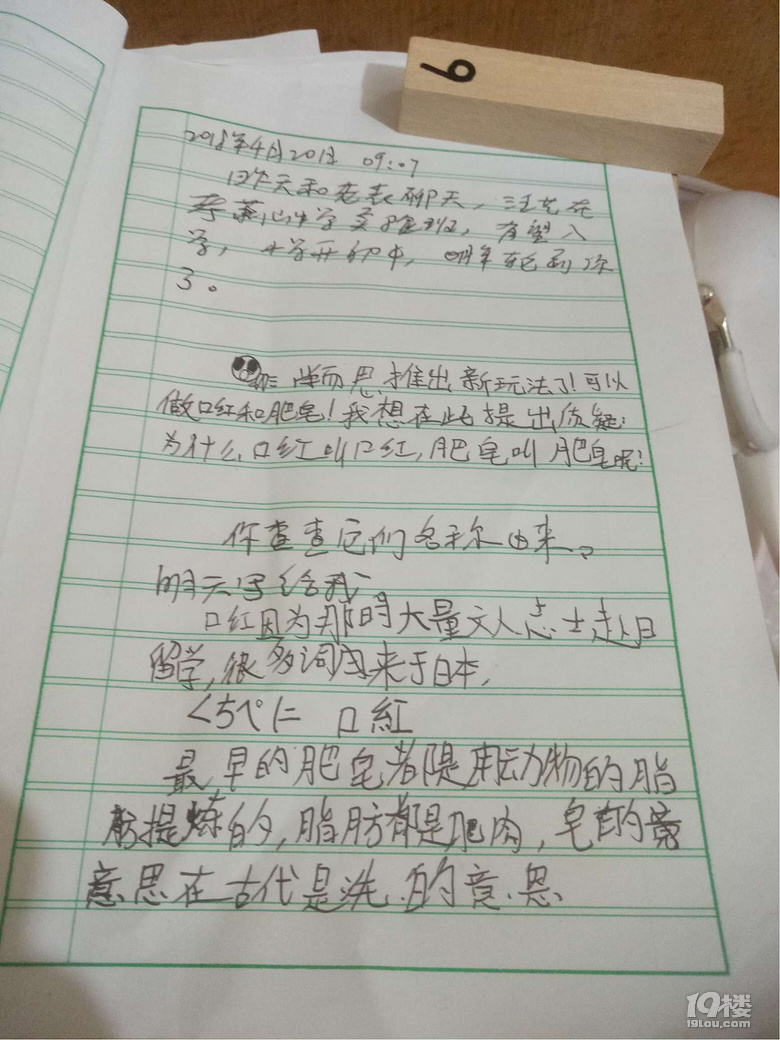 9
2018年4月20日 09:07
昨天和老表聊天，汪先在
学实验班，有望入
学，大学开的中，明年轮到你
了。
学而思推出新玩法了！可以
做口红和肥皂！我想在此提出质疑：
为什么口红叫口红，肥皂叫肥皂呢？
你查查它们名称由来。
明天写给我
口红因为那时大量文人志士赴日
留学，很多词由来于日本，
くちべに 口紅
最早的肥皂都是用动物的脂
肪提炼的，脂肪都是肥肉，皂的
意思在古代是洗的意思
19楼
19lou.com